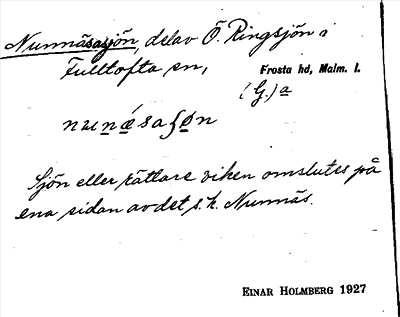 Nunnäsasjön, del av Ö. Ringsjön i
Fulltofta sn,
Frosta hd, Malm. l.
(G.) a
nunǽsaʃøn
Sjön eller rättare viken omslutes på
ena sidan av det s.k. Nunnäs.
EINAR HOLMBERG 1927